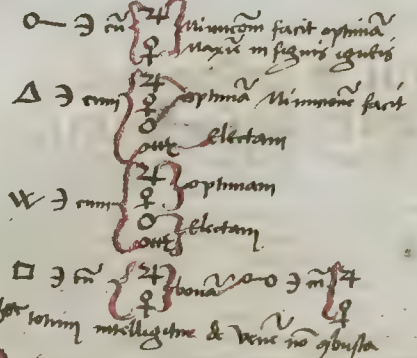 ☍ ☽ cū { ♃ } Minucōem facit optimā
♀ } Maxīe in signis igneis
△ ☽ cum { ♃
♀ optimā Minucionē facit
☉
electam
⚹ ☽ cum { ♃ } optimam
♀
☉ } electam
□ ☽ cū { ♃ } bonā ☍ ☽ cū { ♃
♀ ♀
totum intelligitur de vene nō cōbusta